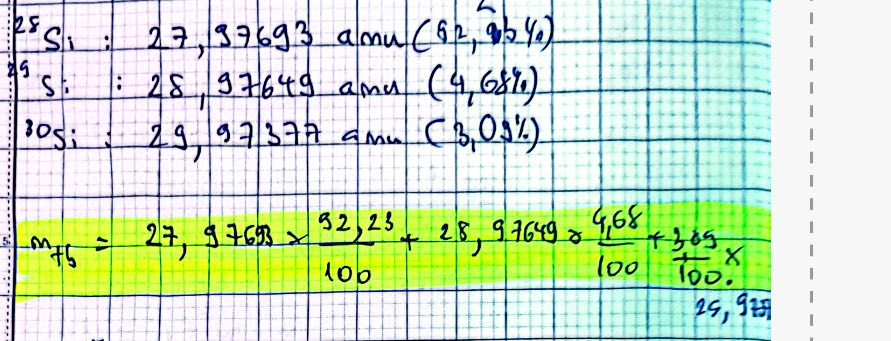 ²⁸Si : 27,97693 amu (92,23%)
²⁹Si : 28,97649 amu (4,68%)
³⁰Si : 29,97377 amu (3,09%)
m_tb = 27,97693 × 92,23/100 + 28,97649 × 4,68/100 + 3,09/100 ×